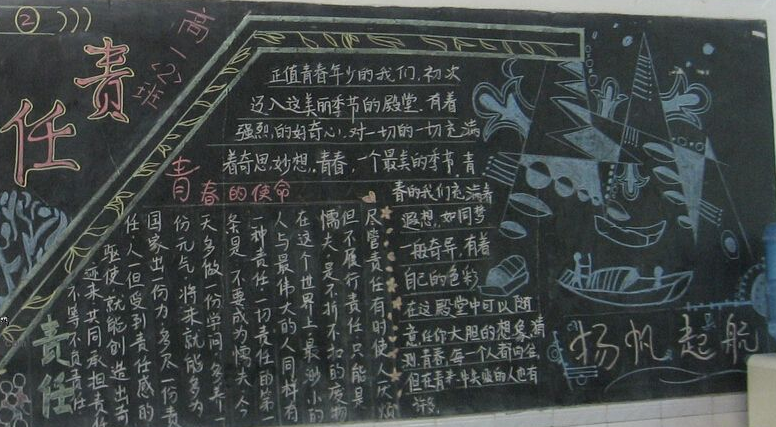 ②
责任
高一(2)班
正值青春年少的我们,初次
迈入这美丽季节的殿堂.有着
强烈的好奇心,对一切的一切充满
着奇思妙想,青春,一个最美的季节,青
春的我们充满着
遐想,如同梦
一般奇异,有着
自己的色彩
在这殿堂中可以随
意任你大胆的想象,猜
测,青春,每一个人都向会,
但在青春,失的人也有
许多.
青春的使命
尽管责任有时使人厌烦
但不履行责任只能是
懦夫,是不折不扣的废物
在这个世界上最渺小的
人与最伟大的人同样有
一种责任一切责任的第一
条是不要成为懦夫今
天多做一份学问,多养一
份元气,将来就能多为
国家出一份力,多尽一份责
任人一但受到责任感的
驱使就能创造出奇
迹来共同承担责任
不等不负责任
责任
扬帆起航